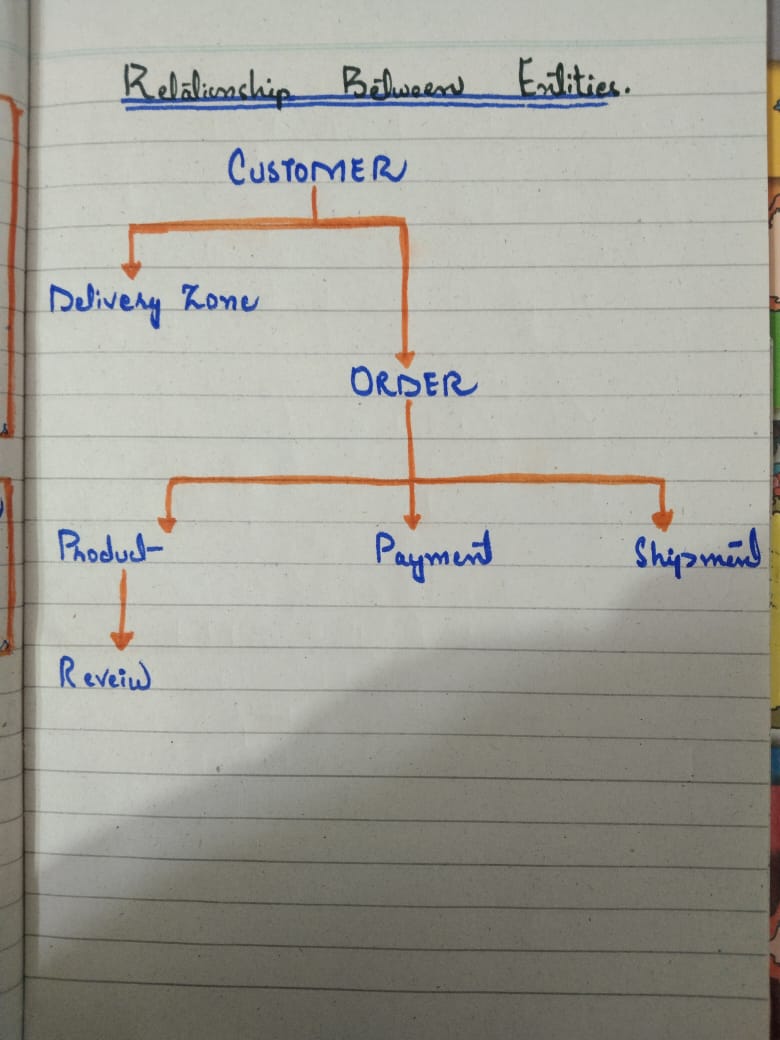 Relationship Between Entities.
CUSTOMER
Delivery Zone
ORDER
Product Payment Shipment
Reveiw